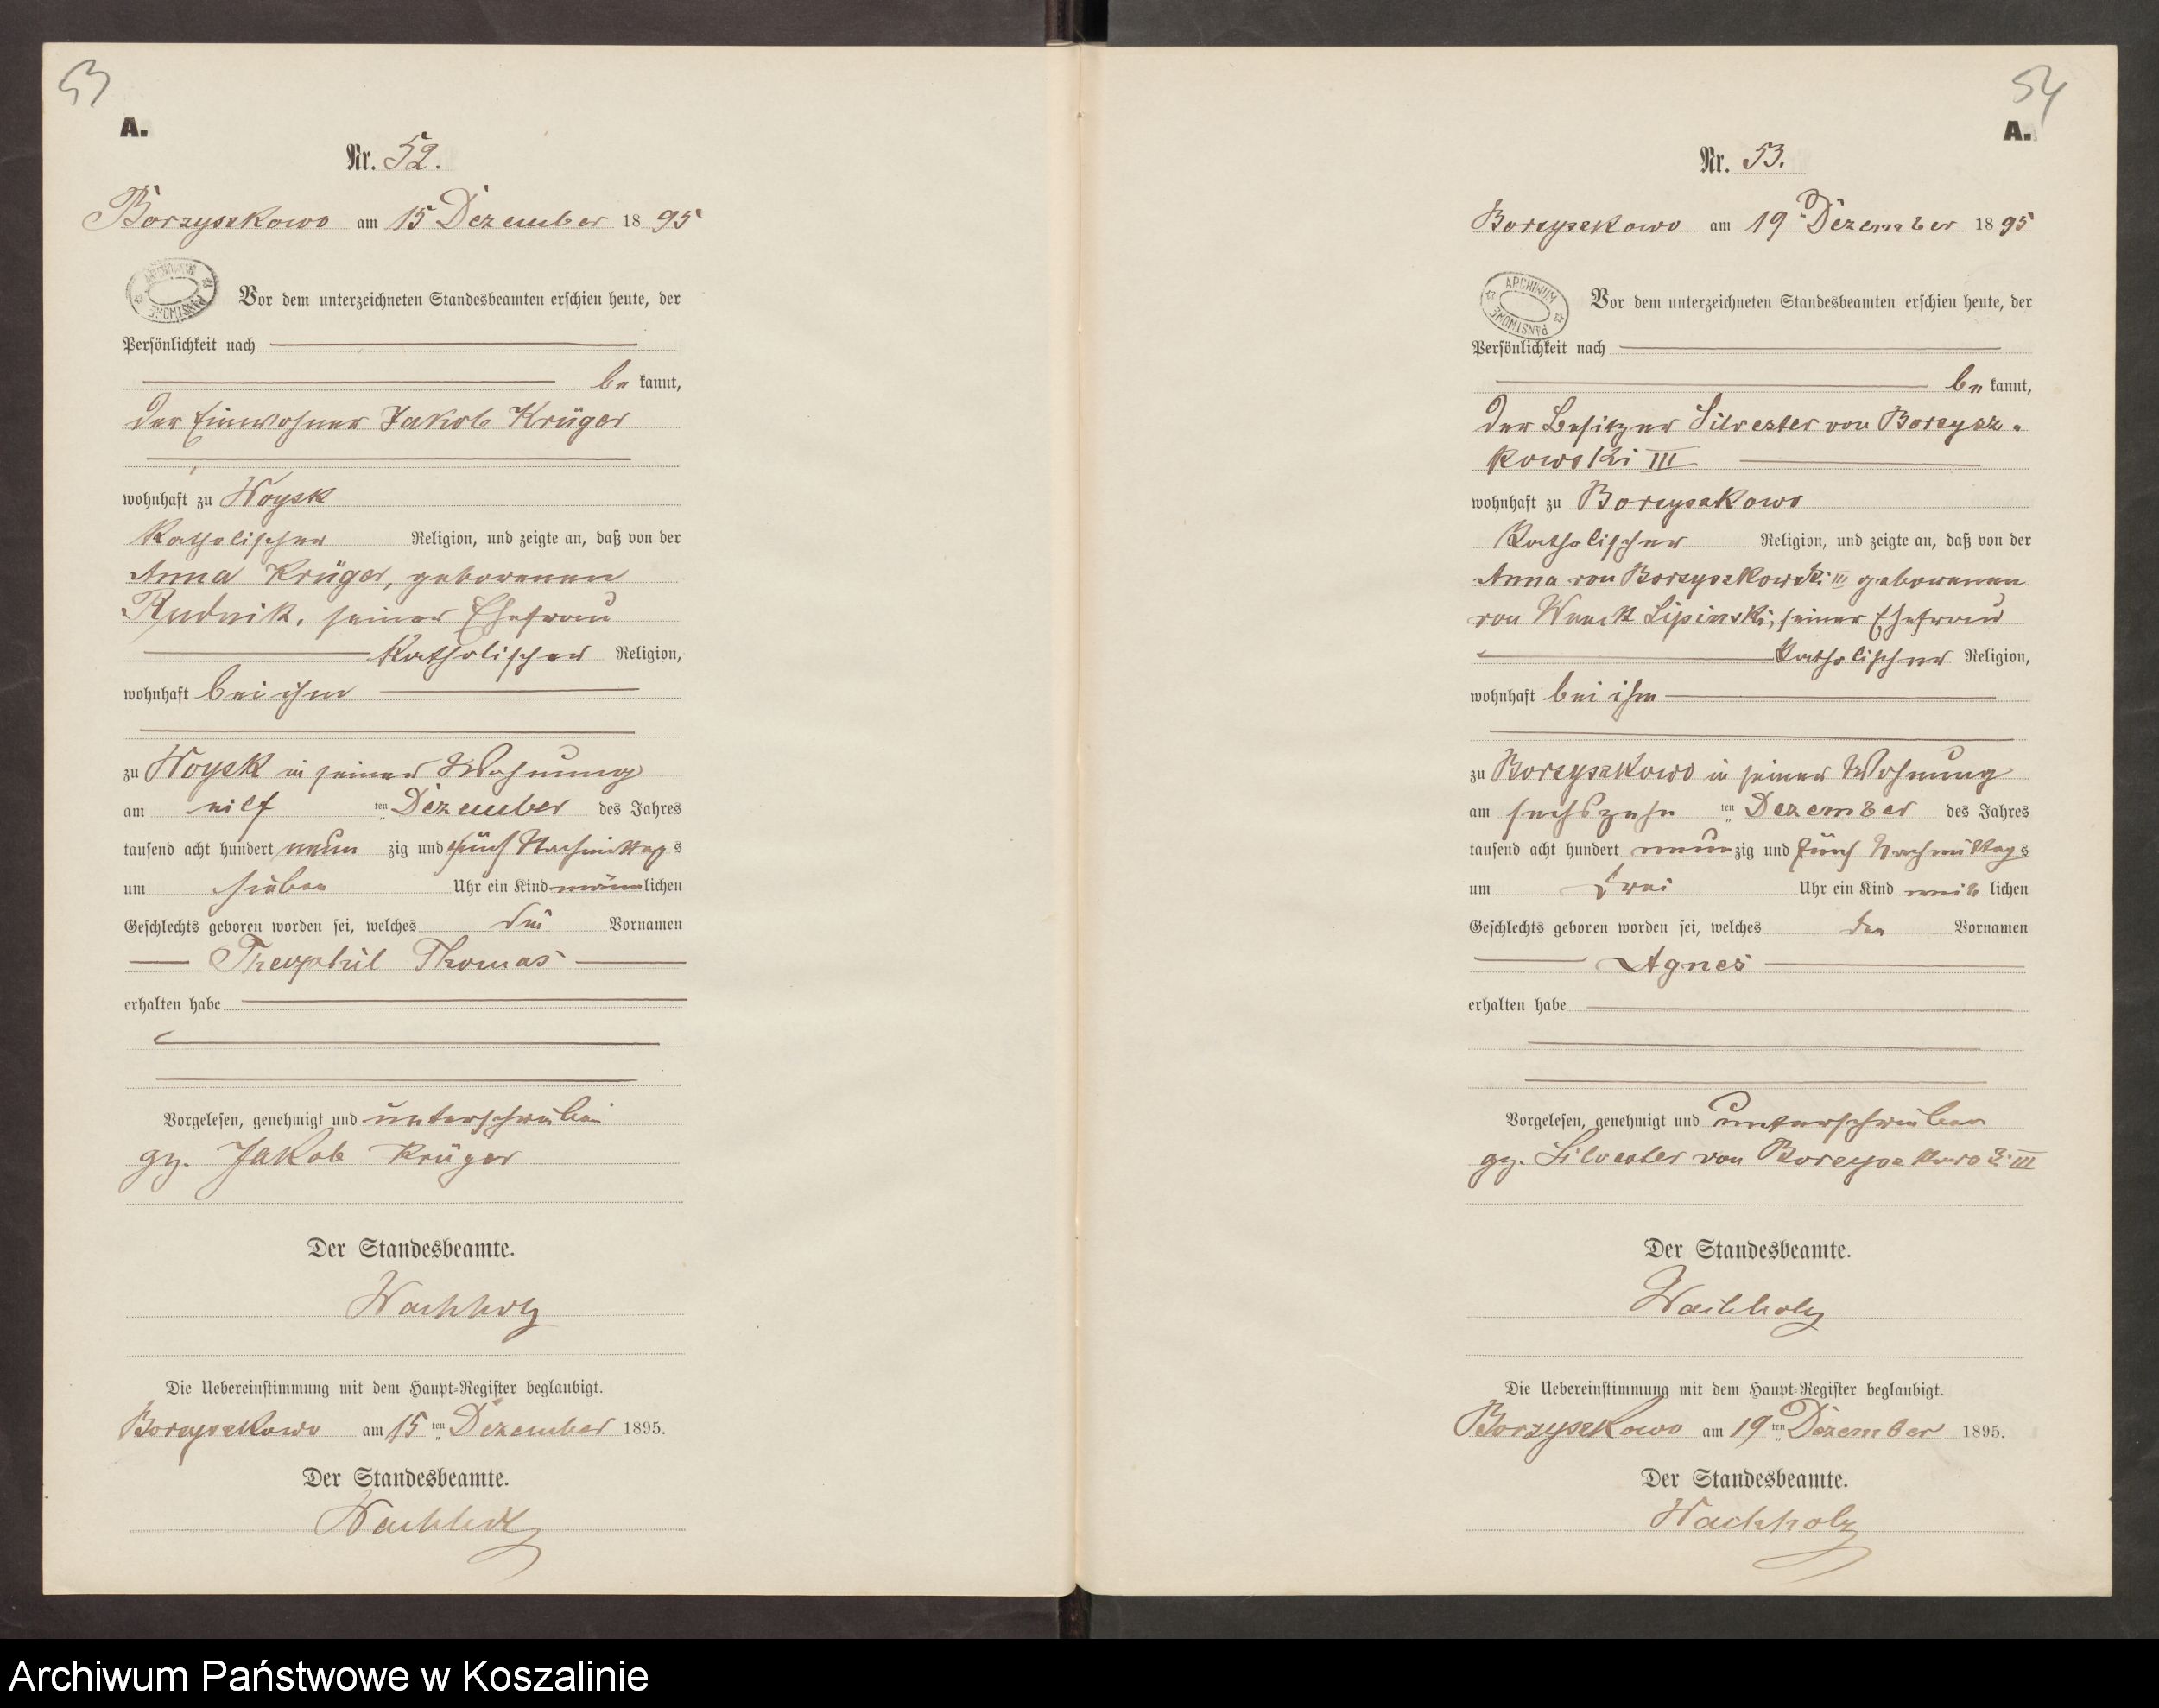 53
A.
Nr. 52.
Borzyszkowo am 15 Dezember 1895
Vor dem unterzeichneten Standesbeamten erschien heute, der
Persönlichkeit nach
be kannt,
der Einwohner Jakob Krüger
wohnhaft zu Woysk
Katholischer Religion, und zeigte an, daß von der
Anna Krüger, geborenen
Rudnik, seiner Ehefrau
Katholischer Religion,
wohnhaft bei ihm
zu Woysk in seiner Wohnung
am eilf ten Dezember des Jahres
tausend acht hundert neun zig und fünf Nachmittag s
um sieben Uhr ein Kind männlichen
Geschlechts geboren worden sei, welches die Vornamen
Theophil Thomas
erhalten habe
Vorgelesen, genehmigt und unterschrieben
gz. Jakob Krüger
Der Standesbeamte.
Wachholz
Die Uebereinstimmung mit dem Haupt-Register beglaubigt.
Borzyszkowo am 15 ten Dezember 1895.
Der Standesbeamte.
Wachholz
54
A.
Nr. 53.
Borzyszkowo am 19 Dezember 1895
ARCHIWUM PAŃSTWOWE
Vor dem unterzeichneten Standesbeamten erschien heute, der
Persönlichkeit nach
be kannt,
der Besitzer Silvester von Borzysz-
kowski III
wohnhaft zu Borzyszkowo
Katholischer Religion, und zeigte an, daß von der
Anna von Borzyszkowski III geborenen
von Wnuck Lipinski, seiner Ehefrau
Katholischer Religion,
wohnhaft bei ihm
zu Borzyszkowo in seiner Wohnung
am sechszehn ten Dezember des Jahres
tausend acht hundert neunzig und fünf Nachmittag s
um zwei Uhr ein Kind weib lichen
Geschlechts geboren worden sei, welches den Vornamen
Agnes
erhalten habe
Vorgelesen, genehmigt und unterschrieben
gz. Silvester von Borzyszkowski III
Der Standesbeamte.
Wachholz
Die Uebereinstimmung mit dem Haupt-Register beglaubigt.
Borzyszkowo am 19 ten Dezember 1895.
Der Standesbeamte.
Wachholz
Archiwum Państwowe w Koszalinie